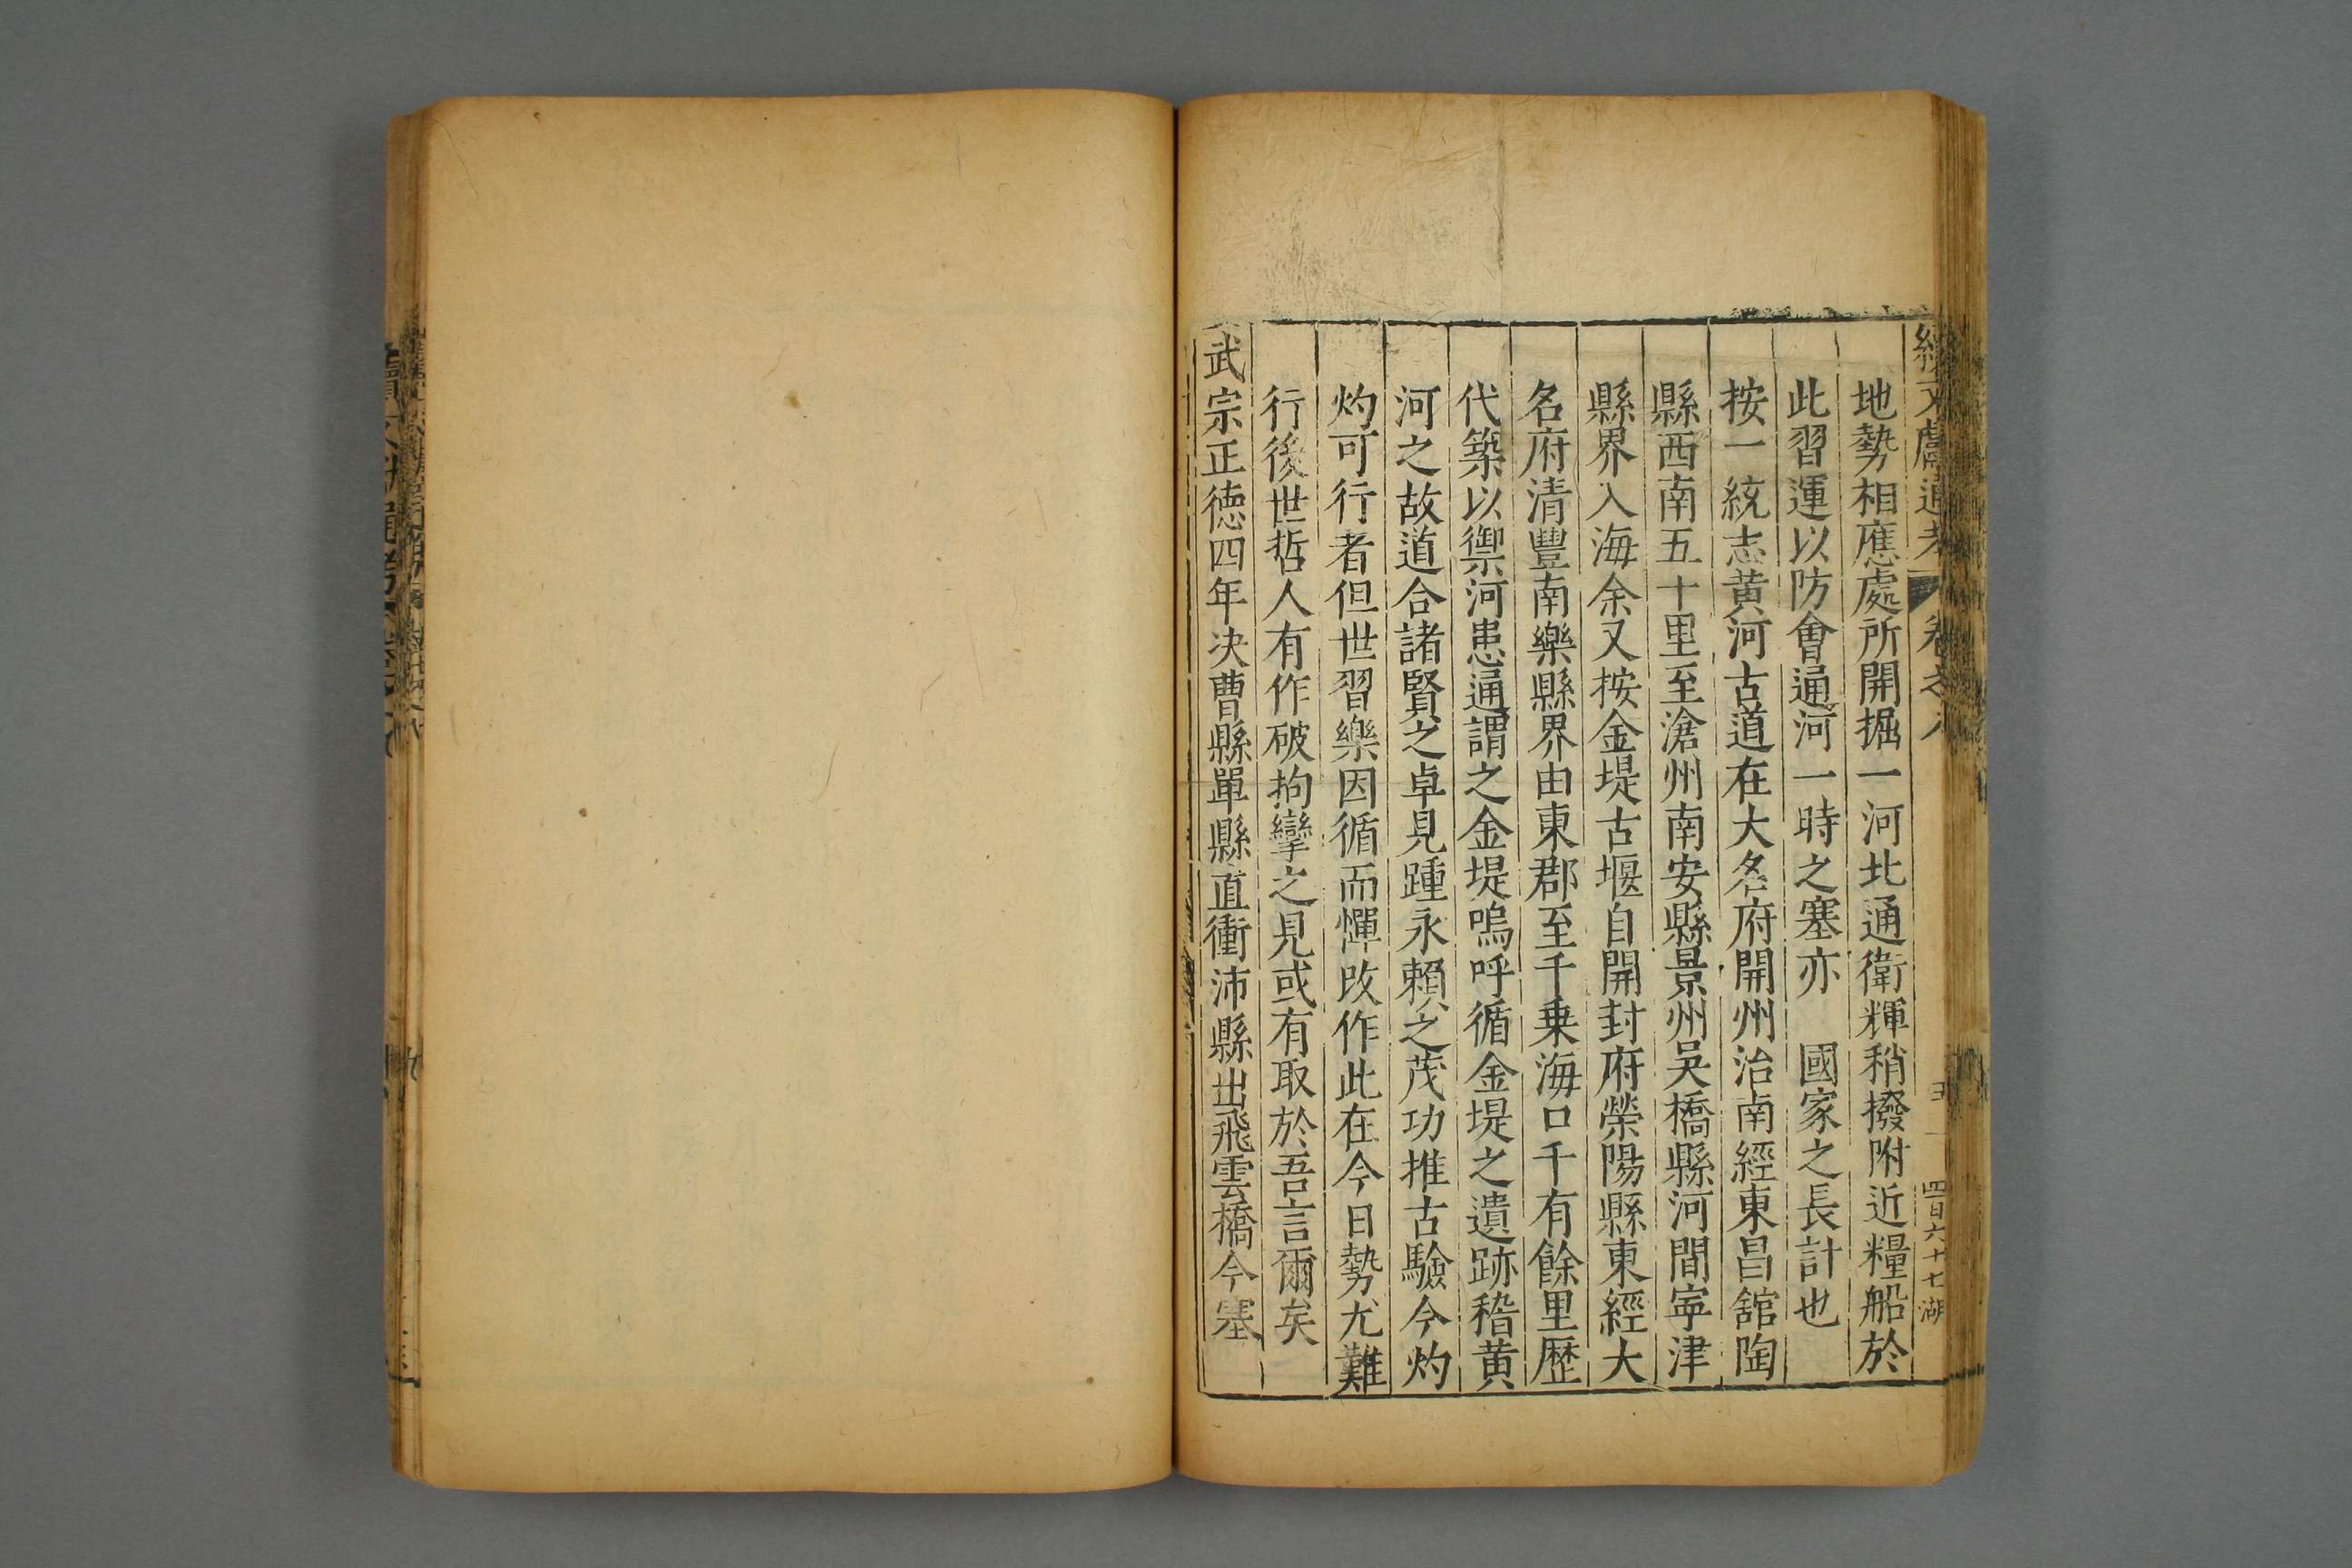 續文獻通考 卷之八
四百六十七 湖
地勢相應處所開掘一河北通衛輝稍撥附近糧船於
此習運以防會通河一時之塞亦 國家之長計也
按一統志黃河古道在大名府開州治南經東昌舘陶
縣西南五十里至滄州南安縣景州吳橋縣河間寧津
縣界入海余又按金堤古堰自開封府滎陽縣東經大
名府清豐南樂縣界由東郡至千乗海口千有餘里歷
代築以禦河患通謂之金堤嗚呼循金堤之遺跡稽黃
河之故道合諸賢之卓見踵永賴之茂功推古驗今灼
灼可行者但世習樂因循而憚改作此在今日勢尤難
行後世哲人有作破拘攣之見或有取於吾言爾矣
武宗正德四年決曹縣單縣直衝沛縣出飛雲橋今塞